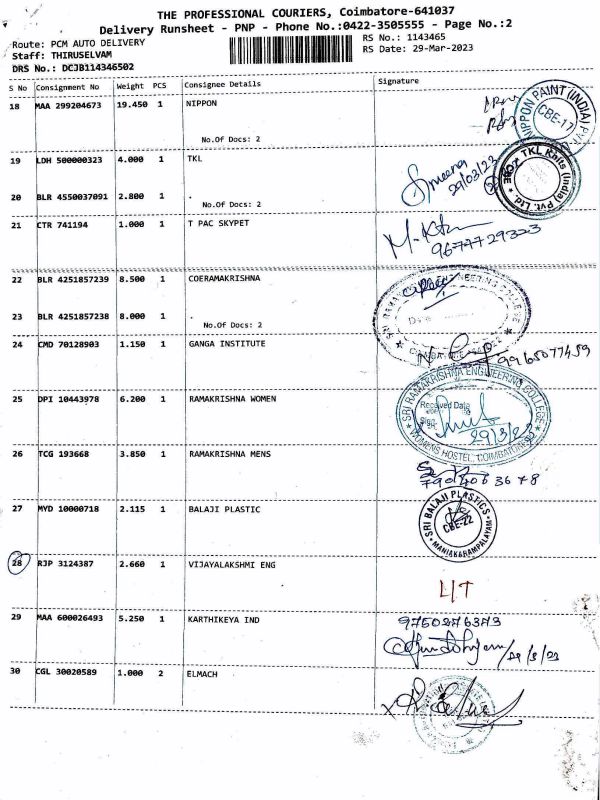 THE PROFESSIONAL COURIERS, Coimbatore-641037
Delivery Runsheet - PNP - Phone No.:0422-3505555 - Page No.:2
Route: PCM AUTO DELIVERY
RS No.: 1143465
Staff: THIRUSELVAM
RS Date: 29-Mar-2023
DRS No.: DCJB114346502
S No Consignment No Weight PCS Consignee Details Signature
18 MAA 299204673 19.450 1 NIPPON
NIPPON PAINT (INDIA) PVT.
CBE-17
No.Of Docs: 2
19 LDH 500000323 4.000 1 TKL
TKL Knits (India) Pvt. Ltd.
29/03/23
20 BLR 4550037091 2.800 1 .
No.Of Docs: 2
21 CTR 741194 1.000 1 T PAC SKYPET
9677729323
22 BLR 4251857239 8.500 1 COERAMAKRISHNA
23 BLR 4251857238 8.000 1 .
No.Of Docs: 2
24 CMD 70128903 1.150 1 GANGA INSTITUTE
9965077459
25 DPI 10443978 6.200 1 RAMAKRISHNA WOMEN
SRI RAMAKRISHNA ENGINEERING COLLEGE
Received Date
Sign
29/3/23
WOMENS HOSTEL, COIMBATORE
26 TCG 193668 3.850 1 RAMAKRISHNA MENS
27 MYD 10000718 2.115 1 BALAJI PLASTIC
SRI BALAJI PLASTICS
CBE-22
MANIAKARAMPALAYAM
28 RJP 3124387 2.660 1 VIJAYALAKSHMI ENG
L/T
29 MAA 600026493 5.250 1 KARTHIKEYA IND
29/3/23
30 CGL 30020589 1.000 2 ELMACH